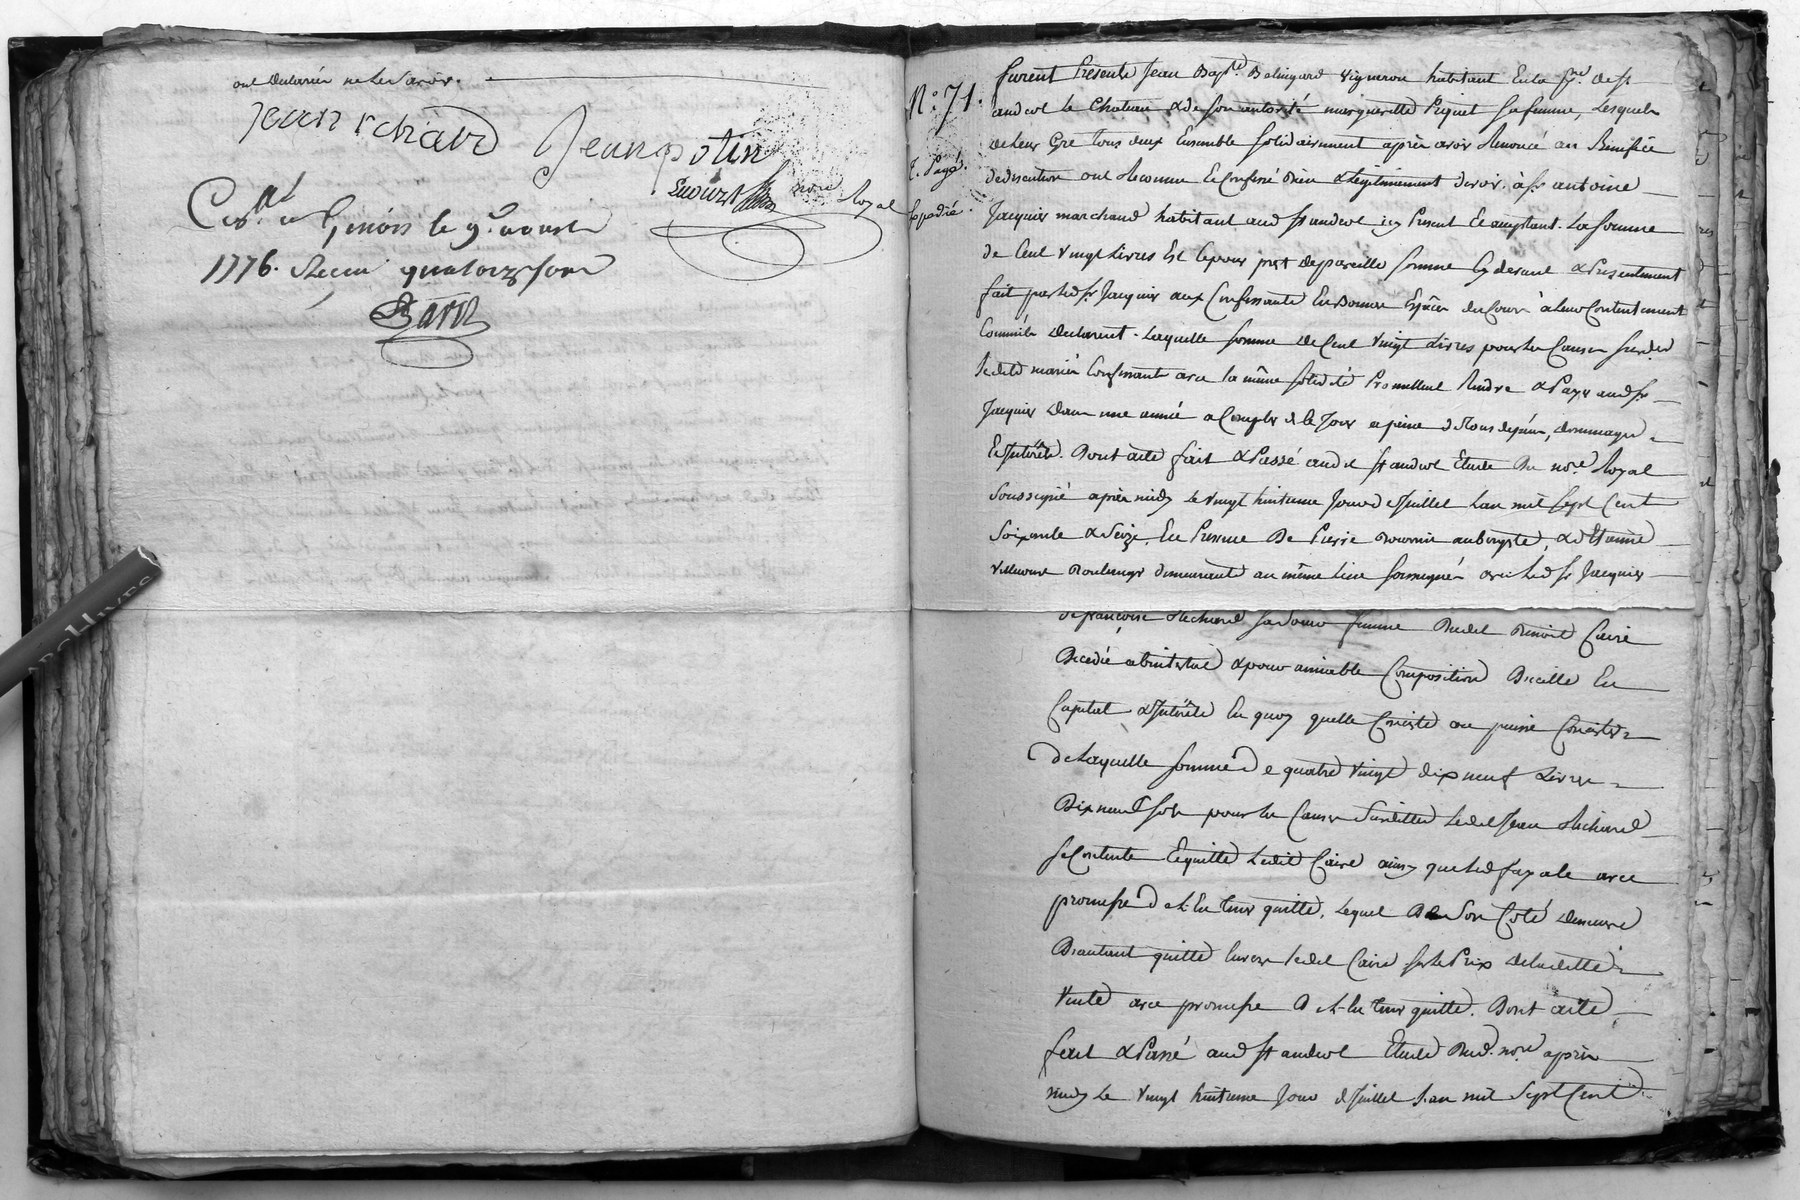 ont declarés ne le savoir.
Jean richard Jean potin
notre Royal
le 9e. aoust
1776. Recu quatorze sous
Baron
N.o 71.
T. Payé
Expedié.
furent Presents Jean Bapte. vigneron habitant en la de st
andeol le Chateau & de son autorité margueritte Piquet sa femme, Lesquels
de leur Gré tous deux Ensemble solidairement après avoir Renoncé au Benefice
de discution ont Reconnu & Confessé Bien & Legitimement devoir à sr antoine
Jacquier marchand habitant aud st andeol icy Present & acceptant. La somme
de Cent vingt Livres Et Ce pour pret de pareille somme Cy devant & Presentement
fait par led sr Jacquier aux Confessants En Bonnes Espèces du Cours à Leur Contentement
Comme ils declarent. Laquelle somme de Cent vingt Livres pour les Causes
Lesdits mariés Confessants avec la même solidité Promettent Rendre & Payer aud sr
Jacquier dans une année a Compter de Ce Jour a peine de tous depens, dommages
& Intérêts. Dont acte fait & Passé aud st andeol Etude du nore. Royal
soussigné après midy le vingt huitieme Jour de Juillet L'an mil sept Cent
soixante & seize, En Presence De Pierre aubergiste, & d'Etienne
Boulanger demeurants au même Lieu soussignés avec led sr Jacquier
de françoise Richard sa femme Dudit Benoit Caire
Decedée abintestat & pour amiable Composition D'icelle En
Capital & Intérêts En quoy quelle Consiste ou puisse Consister
De Laquelle somme de quatre vingt dix neuf Livres
Dix neuf sols pour les Causes Susdittes Ledit Jean Richard
se Contente & quitte Ledit Caire ainsy que led fayole avec
promesse de Les En tenir quitte, Lequel De Son Coté demeure
D'autant quitte Envers ledit Caire sur le Prix de laditte
Vente avec promesse De L'en tenir quitte. Dont acte
fait & Passé aud st andeol Etude Dud. nore. après
midy Le vingt huitieme Jour de Juillet L'an mil Sept Cent